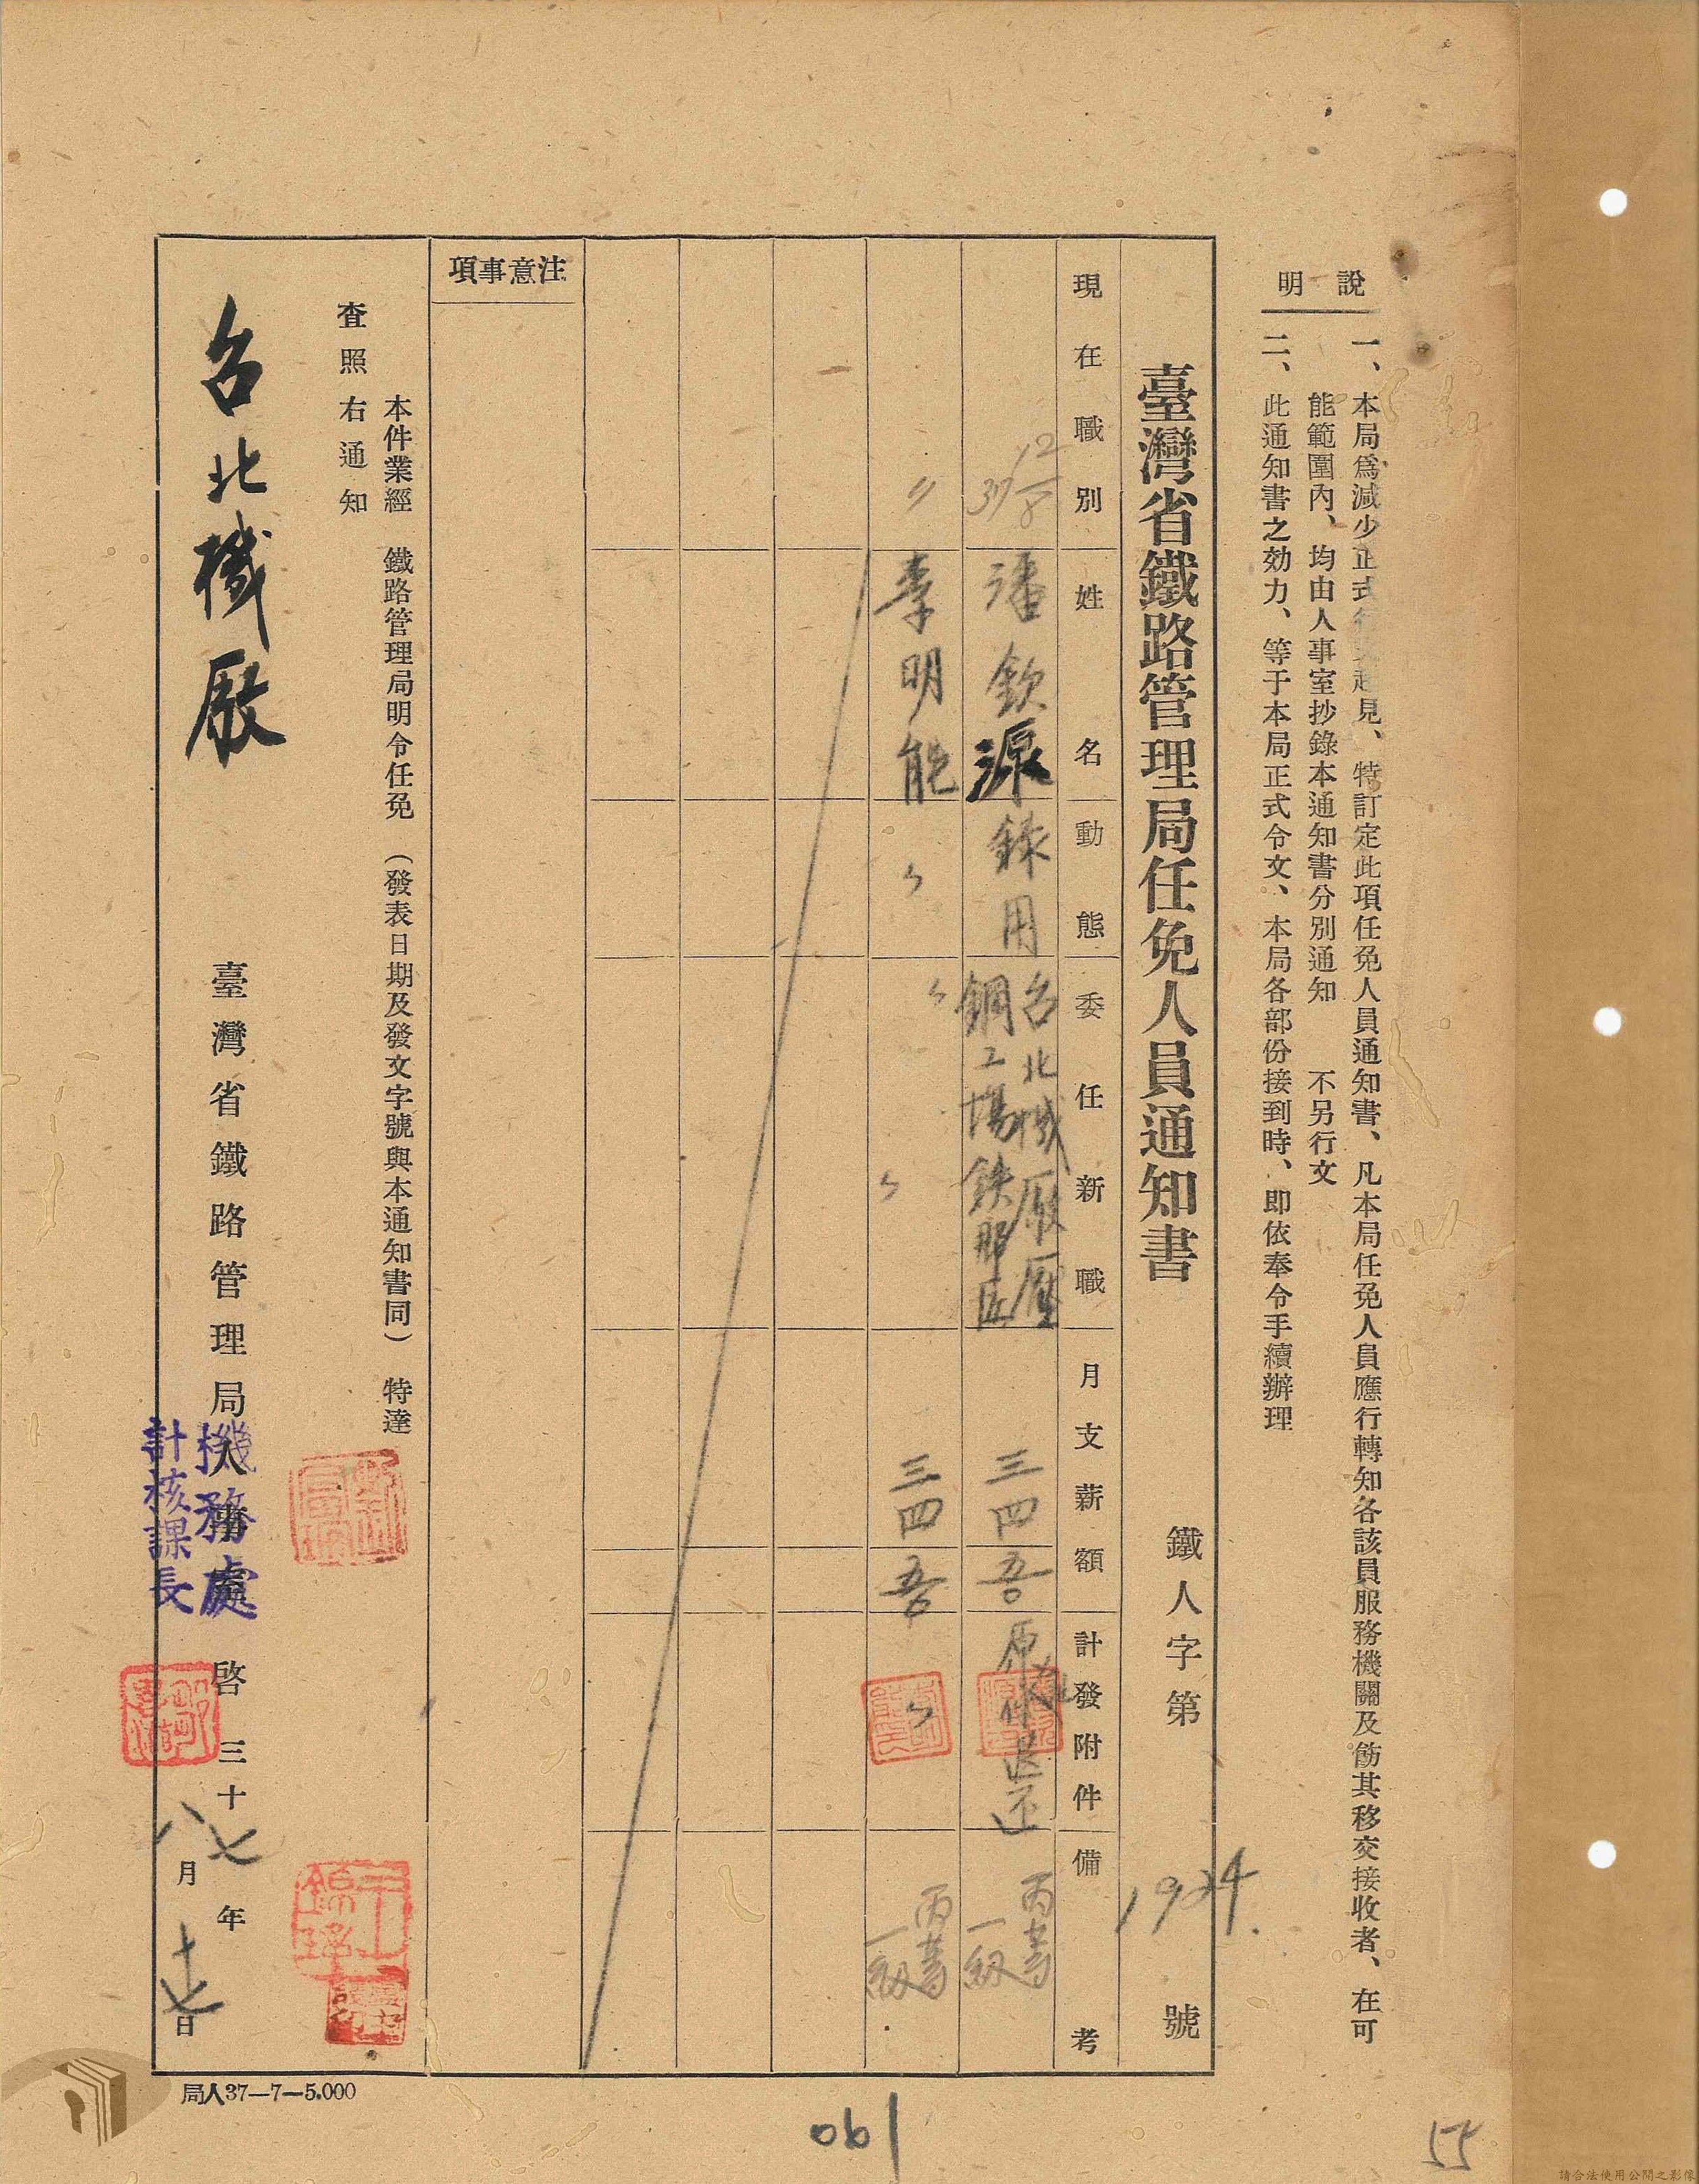 說明
一、本局爲減少正式行文起見、特訂定此項任免人員通知書、凡本局任免人員應行轉知各該員服務機關及飭其移交接收者、在可
能範圍內、均由人事室抄錄本通知書分別通知 不另行文
二、此通知書之効力、等于本局正式令文、本局各部份接到時、即依奉令手續辦理
臺灣省鐵路管理局任免人員通知書
鐵人字第1924.號
現在職別 姓名 動態 委任新職 月支薪額 計發附件 備考
37 12/8 潘欽源 錄用 台北機廠壓鋼工場鉄那匠 三四吾 原件退还 丙等一級
〃 李明能 〃 〃 〃 三四吾 〃 丙等一級
注意事項
本件業經 鐵路管理局明令任免 （發表日期及發文字號與本通知書同） 特達
查照 右通知
台北機厰
臺灣省鐵路管理局人事室 啓 三十七年
八月十七日
機務處
計核課長
局人37—7—5.000
190
55
請合法使用公開之影像